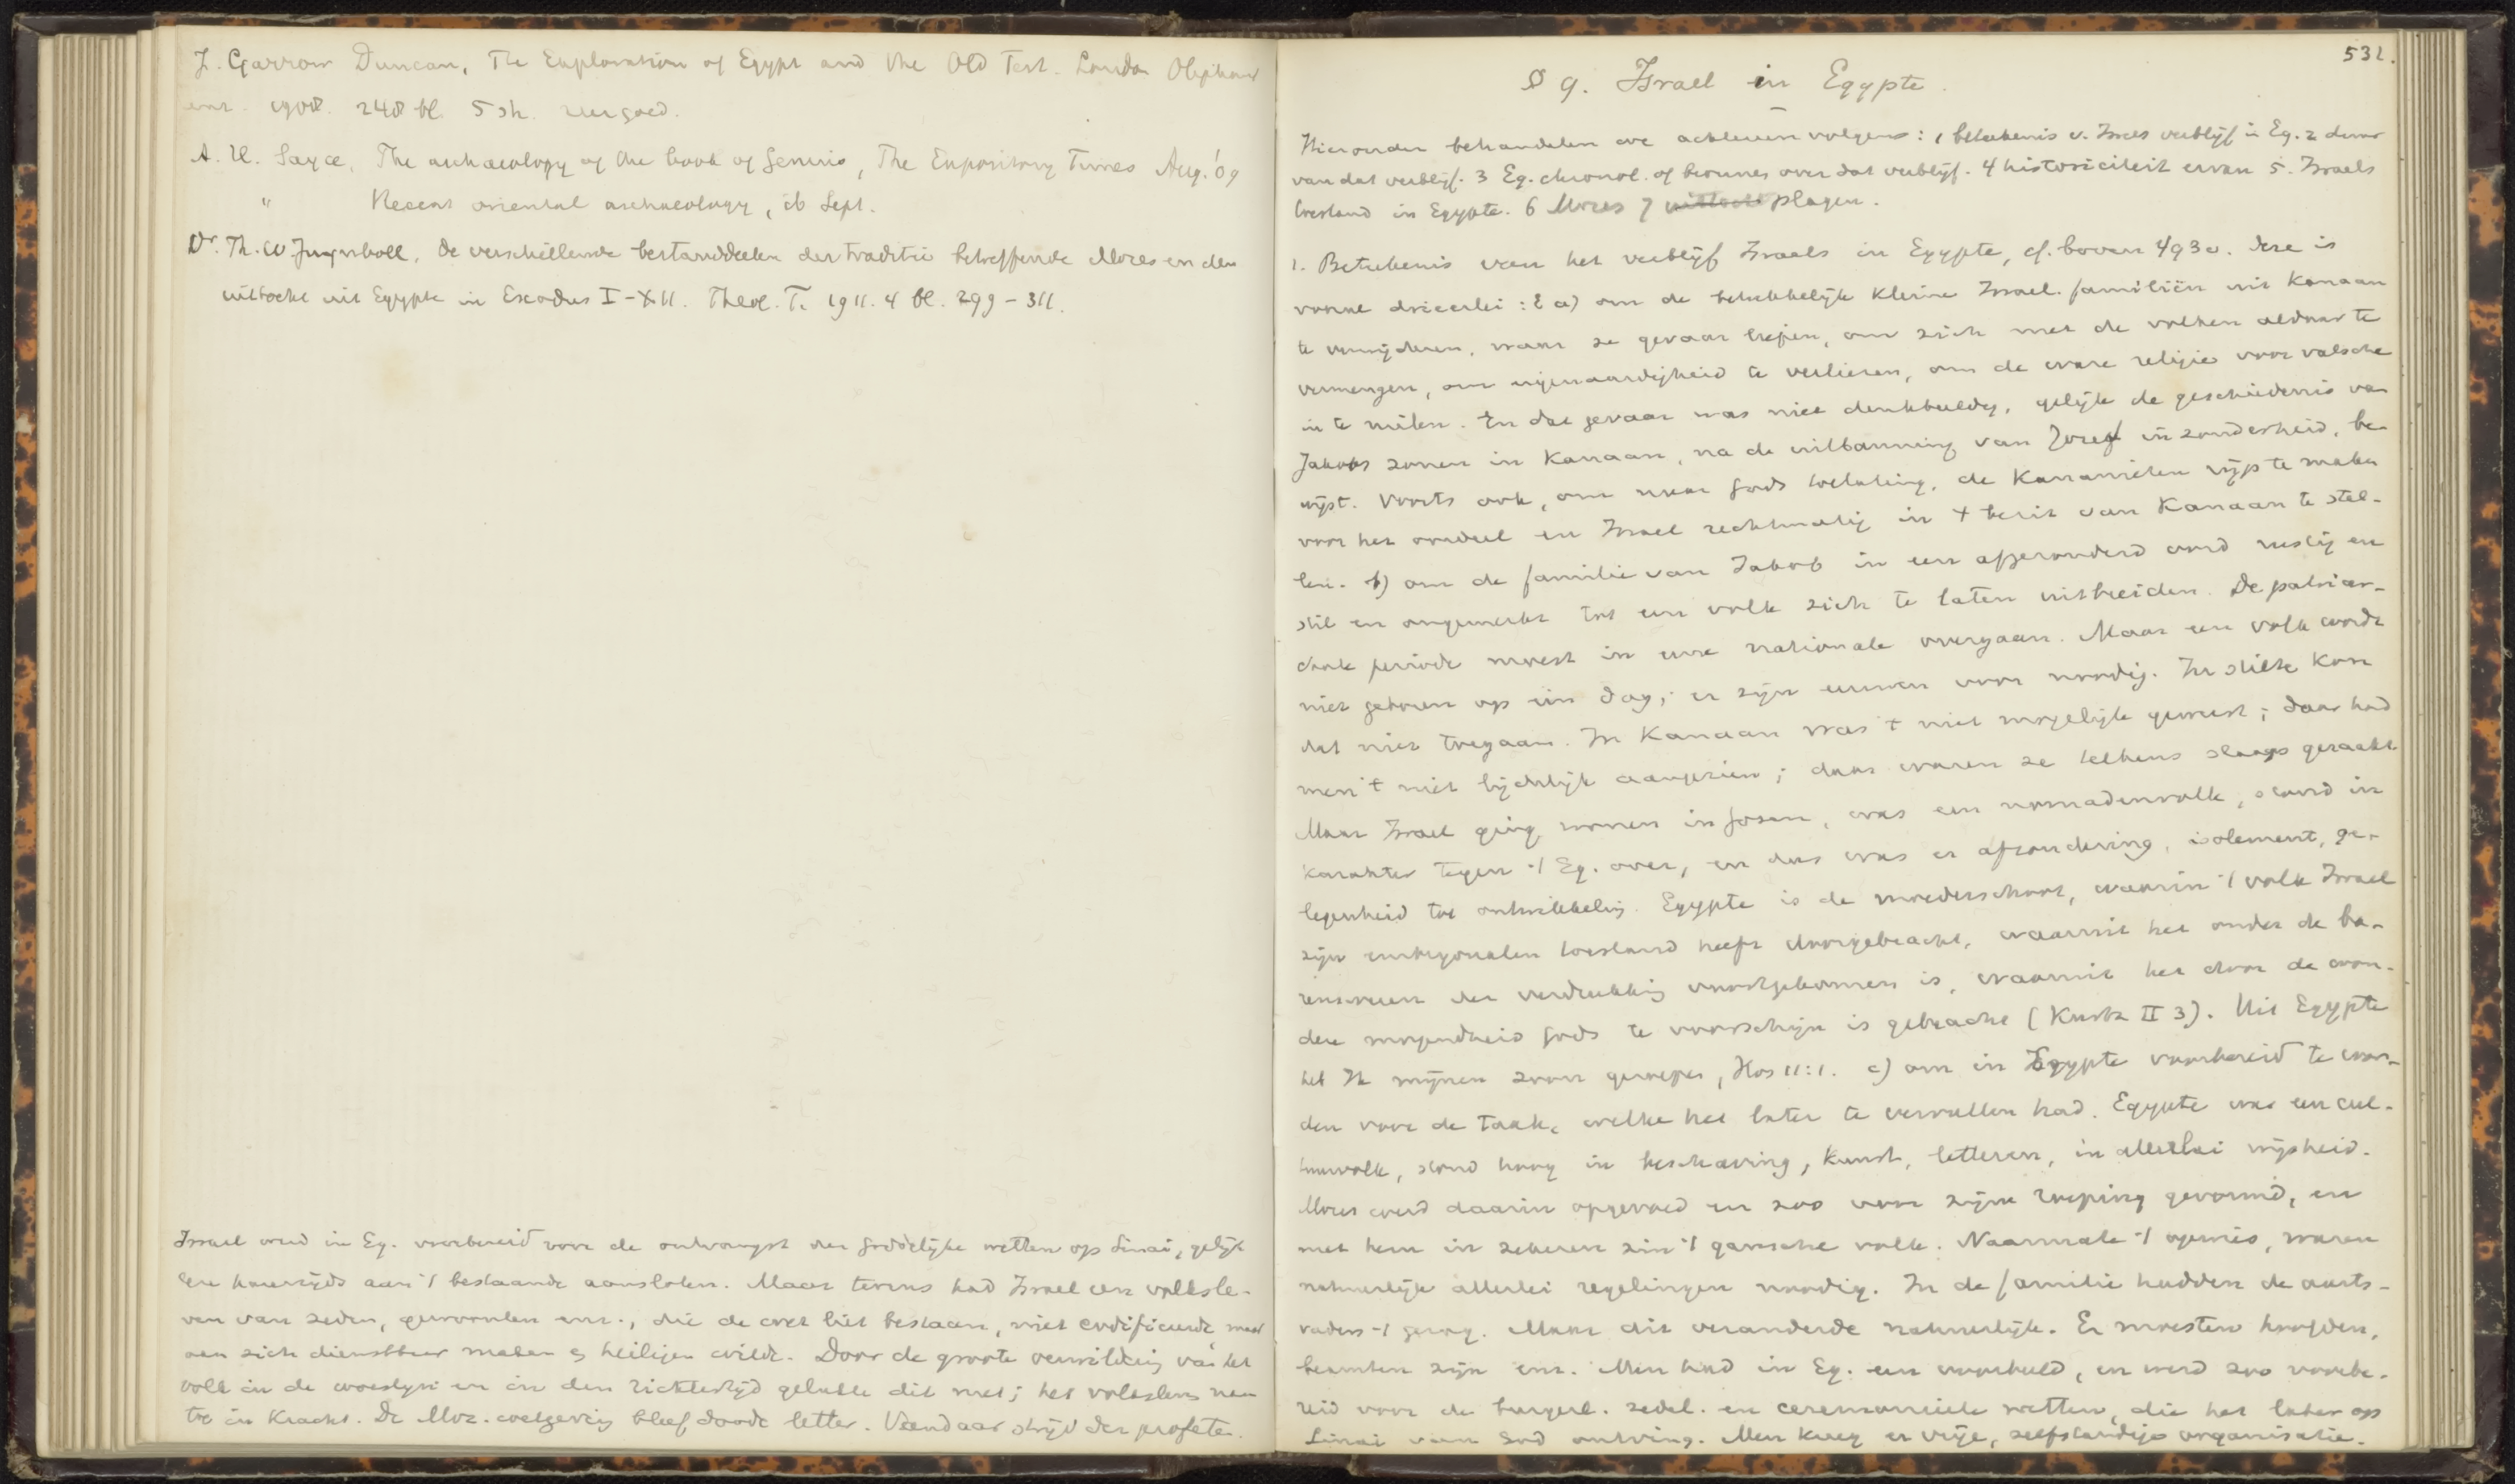 J. Garrow Duncan, The Exploration of Egypt and the Old Test. London Oliphant
enz. 1908. 248 bl. 5 sh. zeer goed.
A. H. Sayce, The archaeology of the book of Genesis, The Expository Times Aug. '09
" Recent oriental archaeology, ib Sept.
Dr. Th. W Juynboll, de verschillende bestanddeelen der traditie betreffende Mozes en den
uittocht uit Egypte in Exodus I-XII. Theol. T. 1911. 4 bl. 299-311.
Israel werd in Eg. voorbereid voor de ontvangst der goddelijke wetten op Sinai, gelijk
deze harerzijds aan 't bestaande aansloten. Maar tevens had Israel een volksle-
ven van zeden, gewoonten enz., die de wet liet bestaan, niet codificeerde maar
aan zich dienstbaar maken en heiligen wilde. Door de groote verwildering van het
volk in de woestijn en in den richtertijd gelukte dit niet; het volksleven nam
toe in kracht. De Moz. wetgeving bleef doode letter. Vandaar strijd der profeten.
531.
§ 9. Israel in Egypte.
Hieronder behandelen we achtereenvolgens: 1 beteekenis v. Isr's verblijf in Eg. 2 duur
van dat verblijf. 3 Eg. chronol. of bronnen over dat verblijf. 4 historiciteit ervan 5. Israels
toestand in Egypte. 6 Mozes 7 plagen.
1. Beteekenis van het verblijf Israels in Egypte, cf. boven 493 v. Deze is
vooral drieerlei: a) om de betrekkelijk kleine Israel. familiën uit Kanaan
te verwijderen, waar ze gevaar liepen, om zich met de volken aldaar te
vermengen, om eigenaardigheid te verliezen, om de ware religie voor valsche
in te ruilen. En dat gevaar was niet denkbeeldig, gelijk de geschiedenis van
Jakobs zonen in Kanaan, na de uitbanning van Jozef inzonderheid, be-
wijst. Voorts ook, om naar Gods toelating, de Kananieten rijp te maken
voor het oordeel en Israel rechtmatig in 't bezit van Kanaan te stel-
len. b) om de familie van Jakob in een afgezonderd oord rustig en
stil en ongemerkt tot een volk zich te laten uitbreiden. De patriar-
chale periode moest in eene nationale overgaan. Maar een volk wordt
niet geboren op één dag; er zijn eeuwen voor noodig. In stilte kon
dat niet toegaan. In Kanaan was 't niet mogelijk geweest; daar had
men 't niet lijdelijk aangezien; daar waren ze telkens slaags geraakt.
Maar Israel ging wonen in Gosen, was een nomadenvolk, stond in
karakter tegen 't Eg. over, en dus was er afzondering, isolement, ge-
legenheid tot ontwikkeling. Egypte is de moederschoot, waarin 't volk Israel
zijn embryonalen toestand heeft doorgebracht, waaruit het onder de ba-
rensweeen der verdrukking voortgekomen is, waaruit het door de won-
dere mogendheid Gods te voorschijn is gebracht (Kurtz II 3). Uit Egypte
heb Ik mijnen zoon geroepen, Hos 11:1. c) om in Egypte voorbereid te wor-
den voor de taak, welke het later te vervullen had. Egypte was een cul-
tuurvolk, stond hoog in beschaving, kunst, letteren, in allerlei wijsheid.
Mozes werd daarin opgevoed en zoo voor zijne roeping gevormd, en
met hem in zekeren zin 't gansche volk. Naarmate 't opwies, waren
natuurlijk allerlei regelingen noodig. In de familie hadden de aarts-
vaders 't gezag. Maar dit veranderde natuurlijk. Er moesten hoofden,
beambten zijn enz. Men had in Eg. een voorbeeld, en werd zoo voorbe-
reid voor de burgerl. zedel. en ceremonieele wetten, die het later op
Sinai van God ontving. Men kreeg er vrije, zelfstandige organisatie.